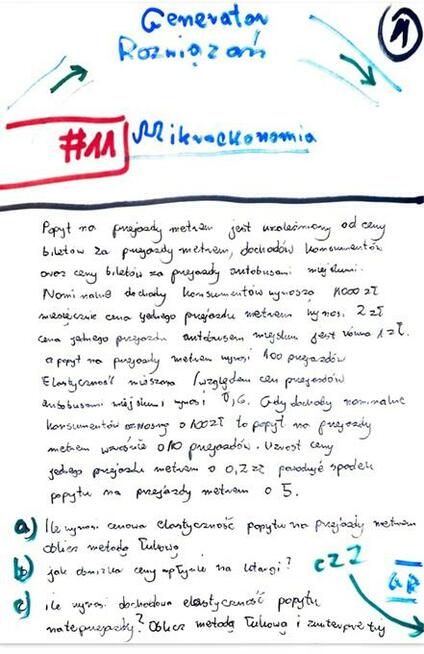 Generator
Rozwiązań
1
#11 Mikroekonomia
Popyt na przejazdy metrem jest uzależniony od ceny
biletów za przejazdy metrem, dochodów konsumentów
oraz ceny biletów za przejazdy autobusami miejskimi.
Nominalne dochody konsumentów wynoszą 1000 zł
miesięcznie cena jednego przejazdu metrem wynosi 2 zł
cena jednego przejazdu autobusem miejskim jest równa 1 zł.
a popyt na przejazdy metrem wynosi 100 przejazdów
Elastyczność mieszana (względem cen przejazdów
autobusami miejskimi) wynosi 0,6. Gdy dochody nominalne
konsumentów wzrosną o 100 zł to popyt na przejazdy
metrem wzrośnie o 10 przejazdów. Wzrost ceny
jednego przejazdu metrem o 0,2 zł powoduje spadek
popytu na przejazdy metrem o 5.
a) Ile wynosi cenowa elastyczność popytu na przejazdy metrem
oblicz metodą łukową
b) jak obniżka ceny wpłynie na utargi?
c) ile wynosi dochodowa elastyczność popytu
na te przejazdy? Oblicz metodą łukową i zinterpretuj
CZ 2
GR